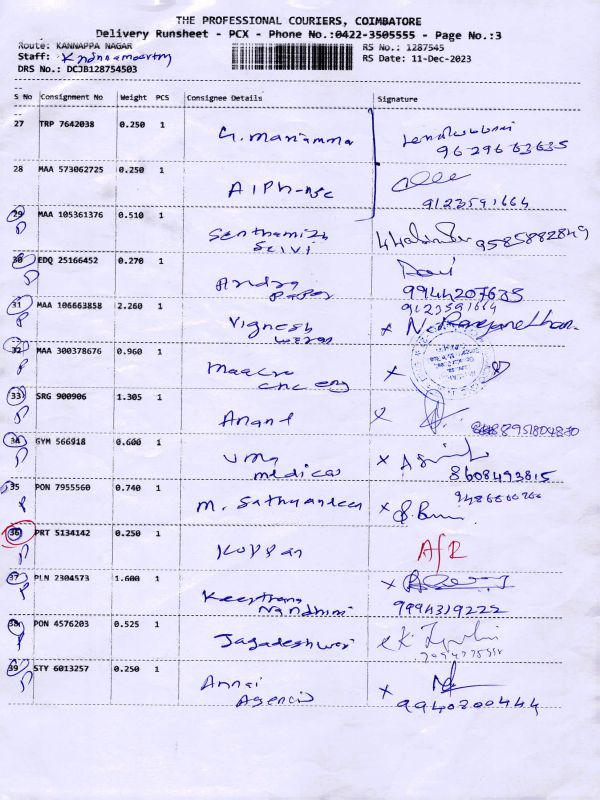 THE PROFESSIONAL COURIERS, COIMBATORE
Delivery Runsheet - PCX - Phone No.:0422-3505555 - Page No.:3
Route: KANNAPPA NAGAR RS No.: 1287545
Staff: RS Date: 11-Dec-2023
DRS No.: DCJB128754503
S No Consignment No Weight PCS Consignee Details Signature
27 TRP 7642038 0.250 1 G. Mariamma
9629663635
28 MAA 573062725 0.250 1
9123591664
29 MAA 105361376 0.510 1 Senthamizh 9585882849
Selvi
30 EDQ 25166452 0.270 1 Andra
Paper 9944207635
9123591664
31 MAA 106663858 2.260 1 Vignesh
32 MAA 300378676 0.960 1
cnc eng
33 SRG 900906 1.305 1 Anand 8951804870
34 GYM 566918 0.600 1 Uma
medical 8608493815
35 PON 7955560 0.740 1 M.
36 PRT 5134142 0.250 1 Kuppan AFR
37 PLN 2304573 1.600 1 Keerthana
Nandhini 9994319222
38 PON 4576203 0.525 1 Jagadeshwari
39 STY 6013257 0.250 1 Annai
Agencis 9940200444